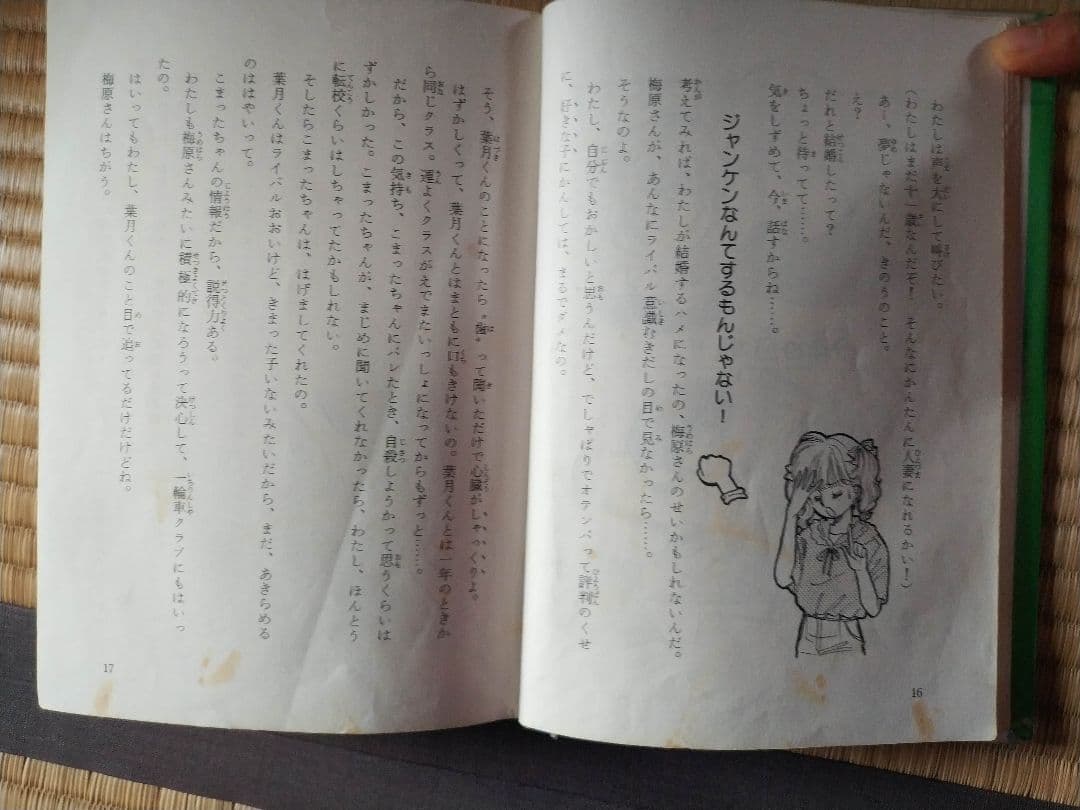 わたしは声を大にして叫びたい。
(わたしはまだ十一歳なんだぞ! そんなにかんたんに人妻になれるかい!)
あー、夢じゃないんだ、きのうのこと。
え?
だれと結婚したって?
ちょっと待って……。
気をしずめて、今、話すからね……。
ジャンケンなんてするもんじゃない!
考えてみれば、わたしが結婚するハメになったの、梅原さんのせいかもしれないんだ。
梅原さんが、あんなにライバル意識むきだしの目で見なかったら……。
そうなのよ。
わたし、自分でもおかしいと思うんだけど、でしゃばりでオテンバって評判のくせ
に、好きな子にかんしては、まるでダメなの。
16
そう、葉月くんのことになったら。〝歯〟って聞いただけで心臓がしゃっくりよ。
はずかしくって、葉月くんとはまともに口もきけないの。葉月くんとは一年のときか
ら同じクラス。運よくクラスがえでまたいっしょになってからもずっと……。
だから、この気持ち、こまったちゃんにバレたとき、自殺しようかって思うくらいは
ずかしかった。こまったちゃんが、まじめに聞いてくれなかったら、わたし、ほんとう
に転校くらいはしちゃってたかもしれない。
そしたらこまったちゃんは、はげましてくれたの。
葉月くんはライバルおおいけど、きまった子いないみたいだから、まだ、あきらめる
のははやいって。
こまったちゃんの情報だから、説得力ある。
わたしも梅原さんみたいに積極的になろうって決心して、一輪車クラブにもはいっ
たの。
はいってもわたし、葉月くんのこと目で追ってるだけだけどね。
梅原さんはちがう。
17